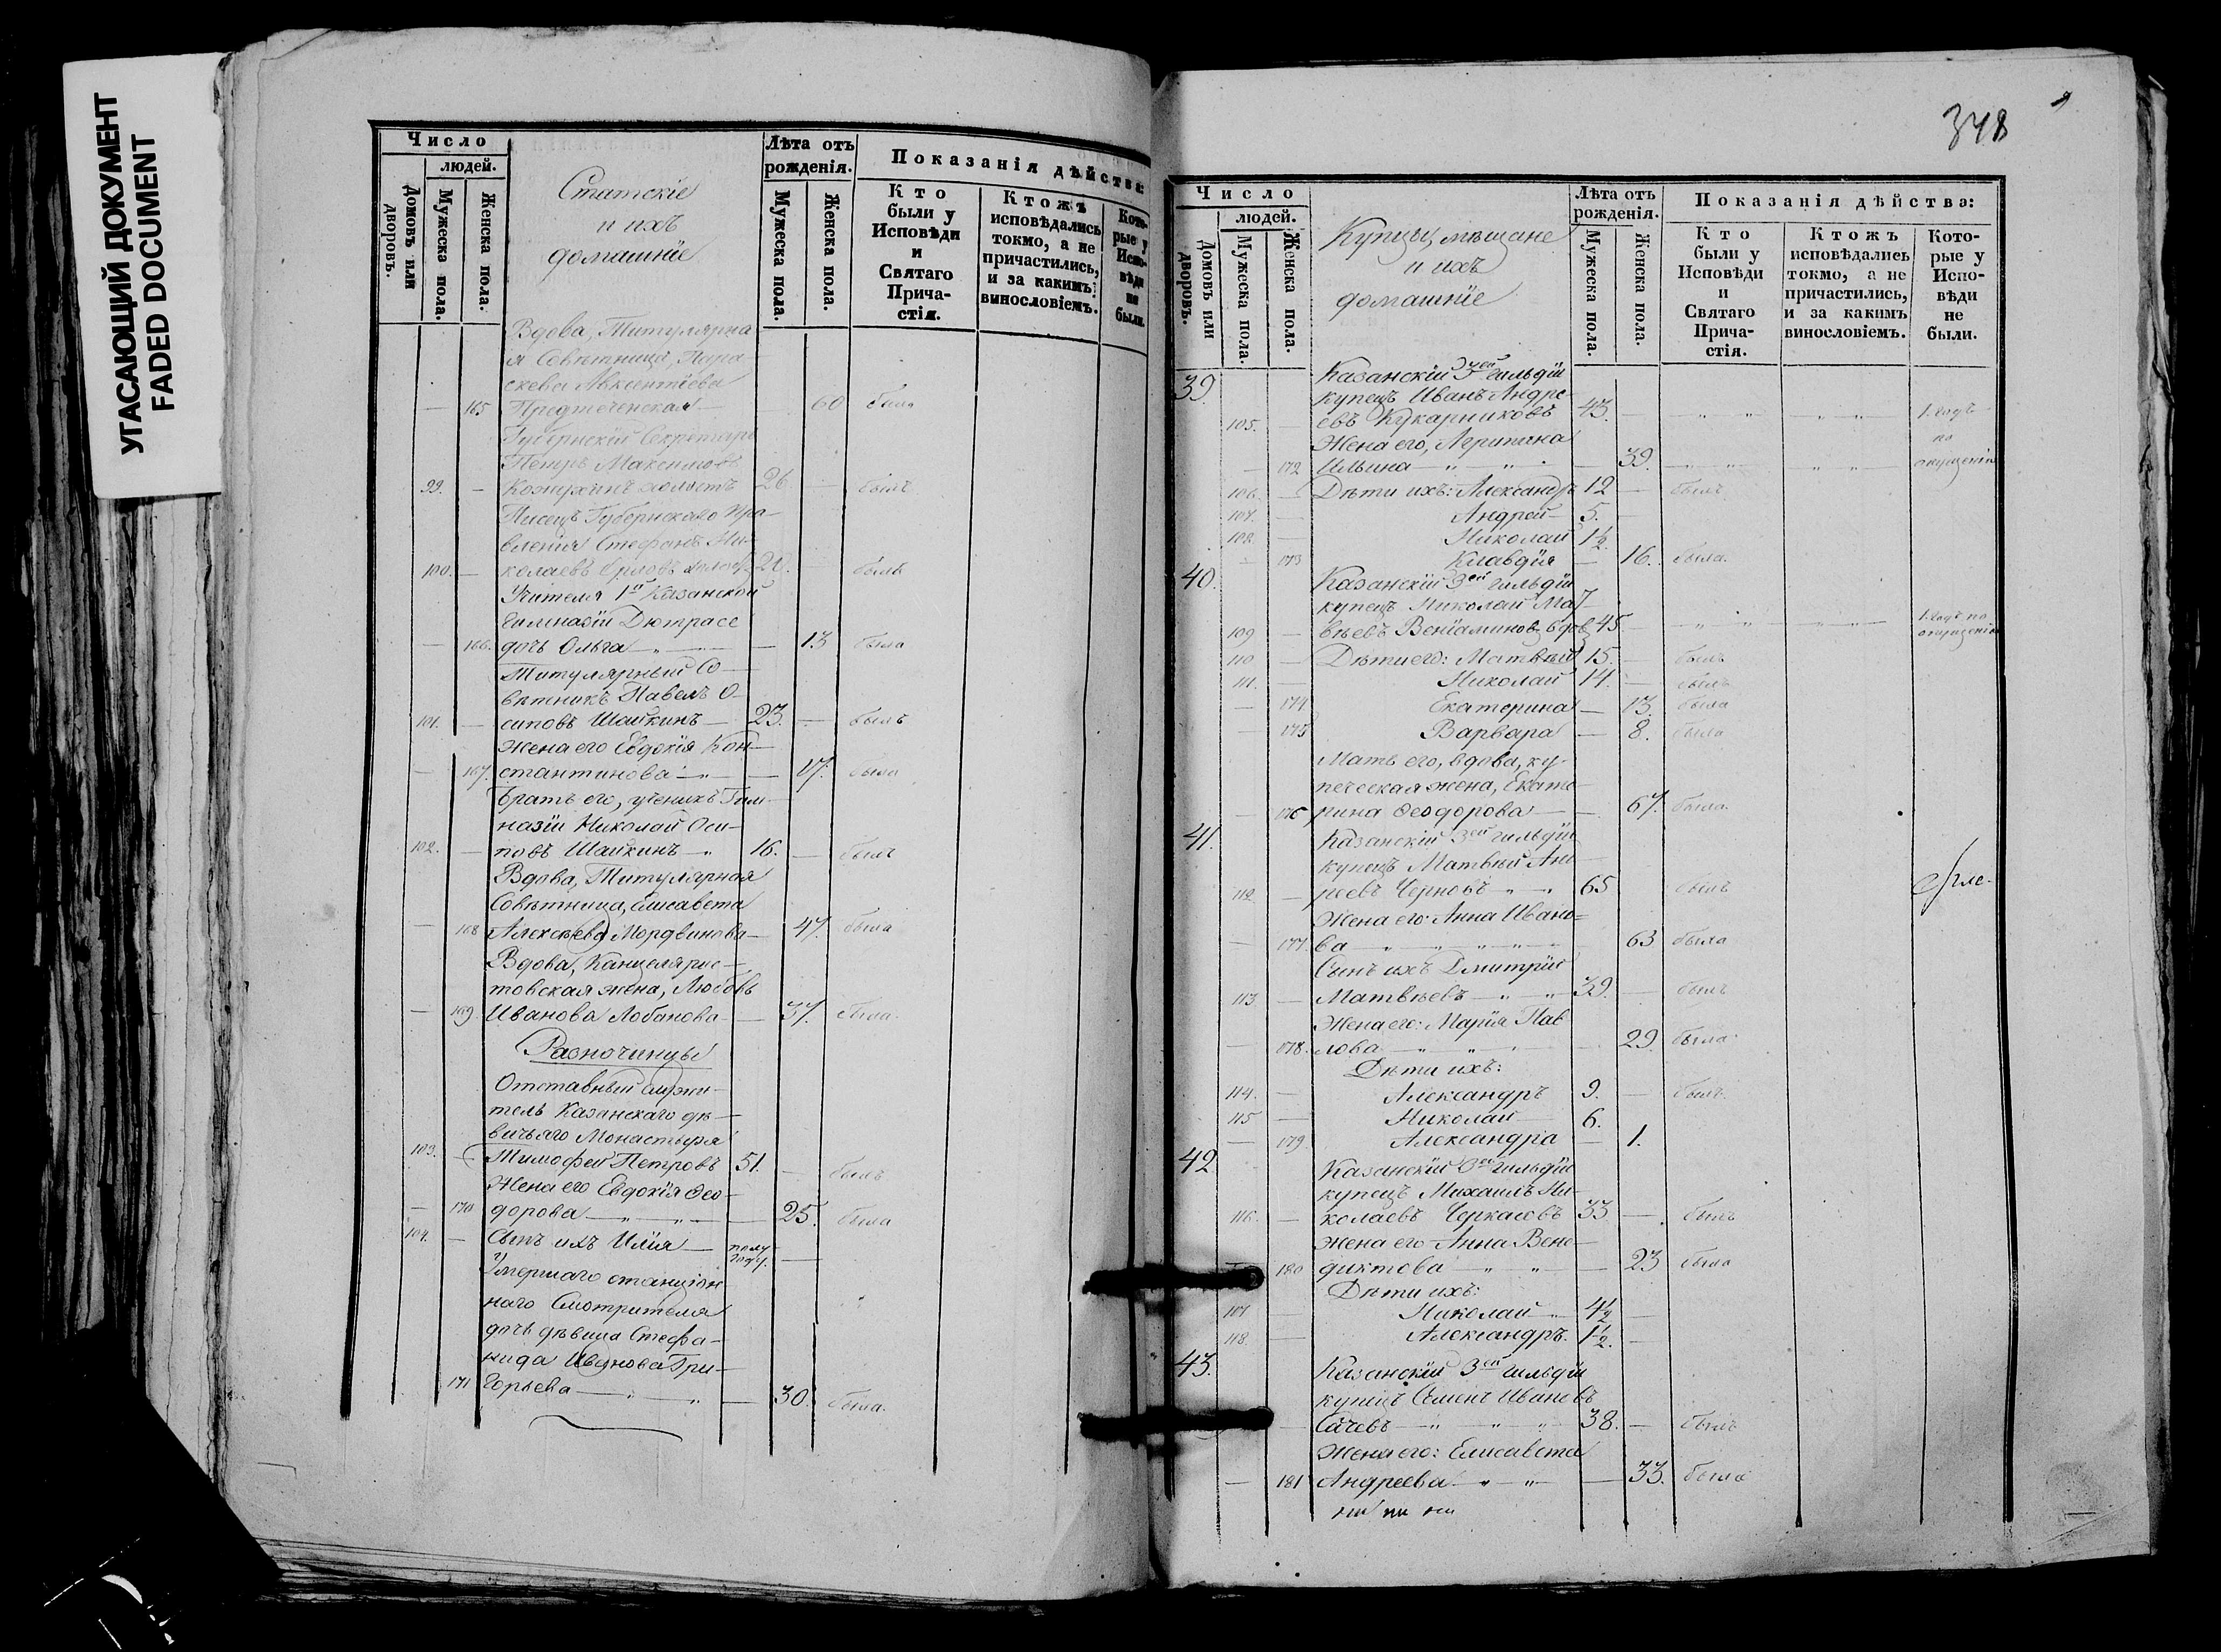 УГАСАЮЩИЙ ДОКУМЕНТ
FADED DOCUMENT
Число
людей.
Домовъ или дворовъ.
Мужеска пола.
Женска пола.
Статскіе
и ихъ
домашніе
Лѣта отъ
рожденія.
Мужеска пола.
Женска пола.
Показанія дѣйства:
Кто
были у
Исповѣди
и
Святаго
Прича-
стія.
Ктожъ
исповѣдались
токмо, а не
причастились,
и за какимъ
винословіемъ.
Кото-
рые у
Испо-
вѣди
не
были.
Вдова, Титулярна
я Совѣтница, Пара-
скева Авксентіева
— 165 Предтеченская — 60 была
Губернскій Секретарь
Петръ Максимовъ
99. — Кожухинъ холостъ 26 — былъ
Писецъ Губернскаго Пра-
вленія Стефанъ Ни-
100. — колаевъ Орловъ 20. былъ
Учителя 1й Казанской
Гимназіи Дютрасе
— 166. дочь Ольга — " — — 13 была
Титулярный Со-
вѣтникъ Павелъ О-
101. — сиповъ Шайкинъ — 23. — былъ
Жена его Евдокія Кон-
— 167. стантинова — " — 17. была
Братъ его, ученикъ Гим-
назіи Николай Оси-
102. — повъ Шайкинъ — " 16. — былъ
Вдова, Титулярная
Совѣтница, Елисавета
— 168 Алексѣева Мордвинова — 47. была
Вдова, Канцелярис-
товская жена, Любовь
— 169. Иванова Лобанова — 37. была.
Разночинцы
Отставный служи-
тель Казанскаго дѣ-
вичьяго Монастыря
103. — Тимофей Петровъ 51. — былъ
Жена его Евдокія Ѳео-
— 170 дорова — " — " — 25. была
104. — Сынъ ихъ Илія — полу-
году. —
Умершаго станціон-
наго Смотрителя
дочь дѣвица Стефа-
нида Иванова Гри-
171 горьева — " — " — 30. была.
348
Число
людей.
Домовъ или дворовъ.
Мужеска пола.
Женска пола.
Купцы, мѣщане
и ихъ
домашніе
Лѣта отъ
рожденія.
Мужеска пола.
Женска пола.
Показанія дѣйства:
Кто
были у
Исповѣди
и
Святаго
Прича-
стія.
Ктожъ
исповѣдались
токмо, а не
причастились,
и за какимъ
винословіемъ.
Кото-
рые у
Испо-
вѣди
не
были.
39. Казанскій 3ей гильдіи
купецъ Иванъ Андре-
105. — евъ Кукарниковъ 43. — " " " " 1. годъ
Жена его, Агрипина по
— 172 Ильина — " — " — 39. " " " " опущенію
106. — Дѣти ихъ: Александръ 12 — былъ
107. — Андрей — 5. —
108. — Николай 1½
— 173 Клавдія — 16. была.
40. Казанскій 3ей гильдіи
купецъ Николай Мат-
109 — вѣевъ Веніаминовъ вдов. 45 — " " " " 1. годъ по
опущенію
110 — Дѣти его: Матвѣй 15. — былъ
111. — Николай 14. — былъ
— 174 Екатерина — 13. была
— 175 Варвара — 8. была
Мать его, вдова, ку-
печеская жена, Екате-
— 176 рина Ѳеодорова — 67. была.
41. Казанскій 3ей гильдіи
купецъ Матвѣй Анд-
112 — реевъ Черновъ " — " 65 былъ
Жена его: Анна Ивано-
— 177. ва — " — " — " — 63 была
Сынъ ихъ Дмитрій
113. — Матвѣевъ — " — " 39. — былъ
Жена его: Марія Пав-
— 178. лова — " — " — 29. была
Дѣти ихъ:
114. — Александръ 9. — былъ.
115 — Николай — 6.
— 179 Александра — 1.
42 Казанскій 3ей гильдіи
купецъ Михаилъ Ни-
116. — колаевъ Черкасовъ 33 — былъ
жена его Анна Вене-
— 180 диктова — " — " — 23 была
Дѣти ихъ:
117 Николай — " 4½ —
118. — Александръ. 1½. —
43. Казанскій 3ей гильдіи
купецъ Семенъ Ивановъ
— Сачевъ — " — " — " 38. — былъ
Жена его: Елисавета
— 181 Андреева — " — " — 33. была